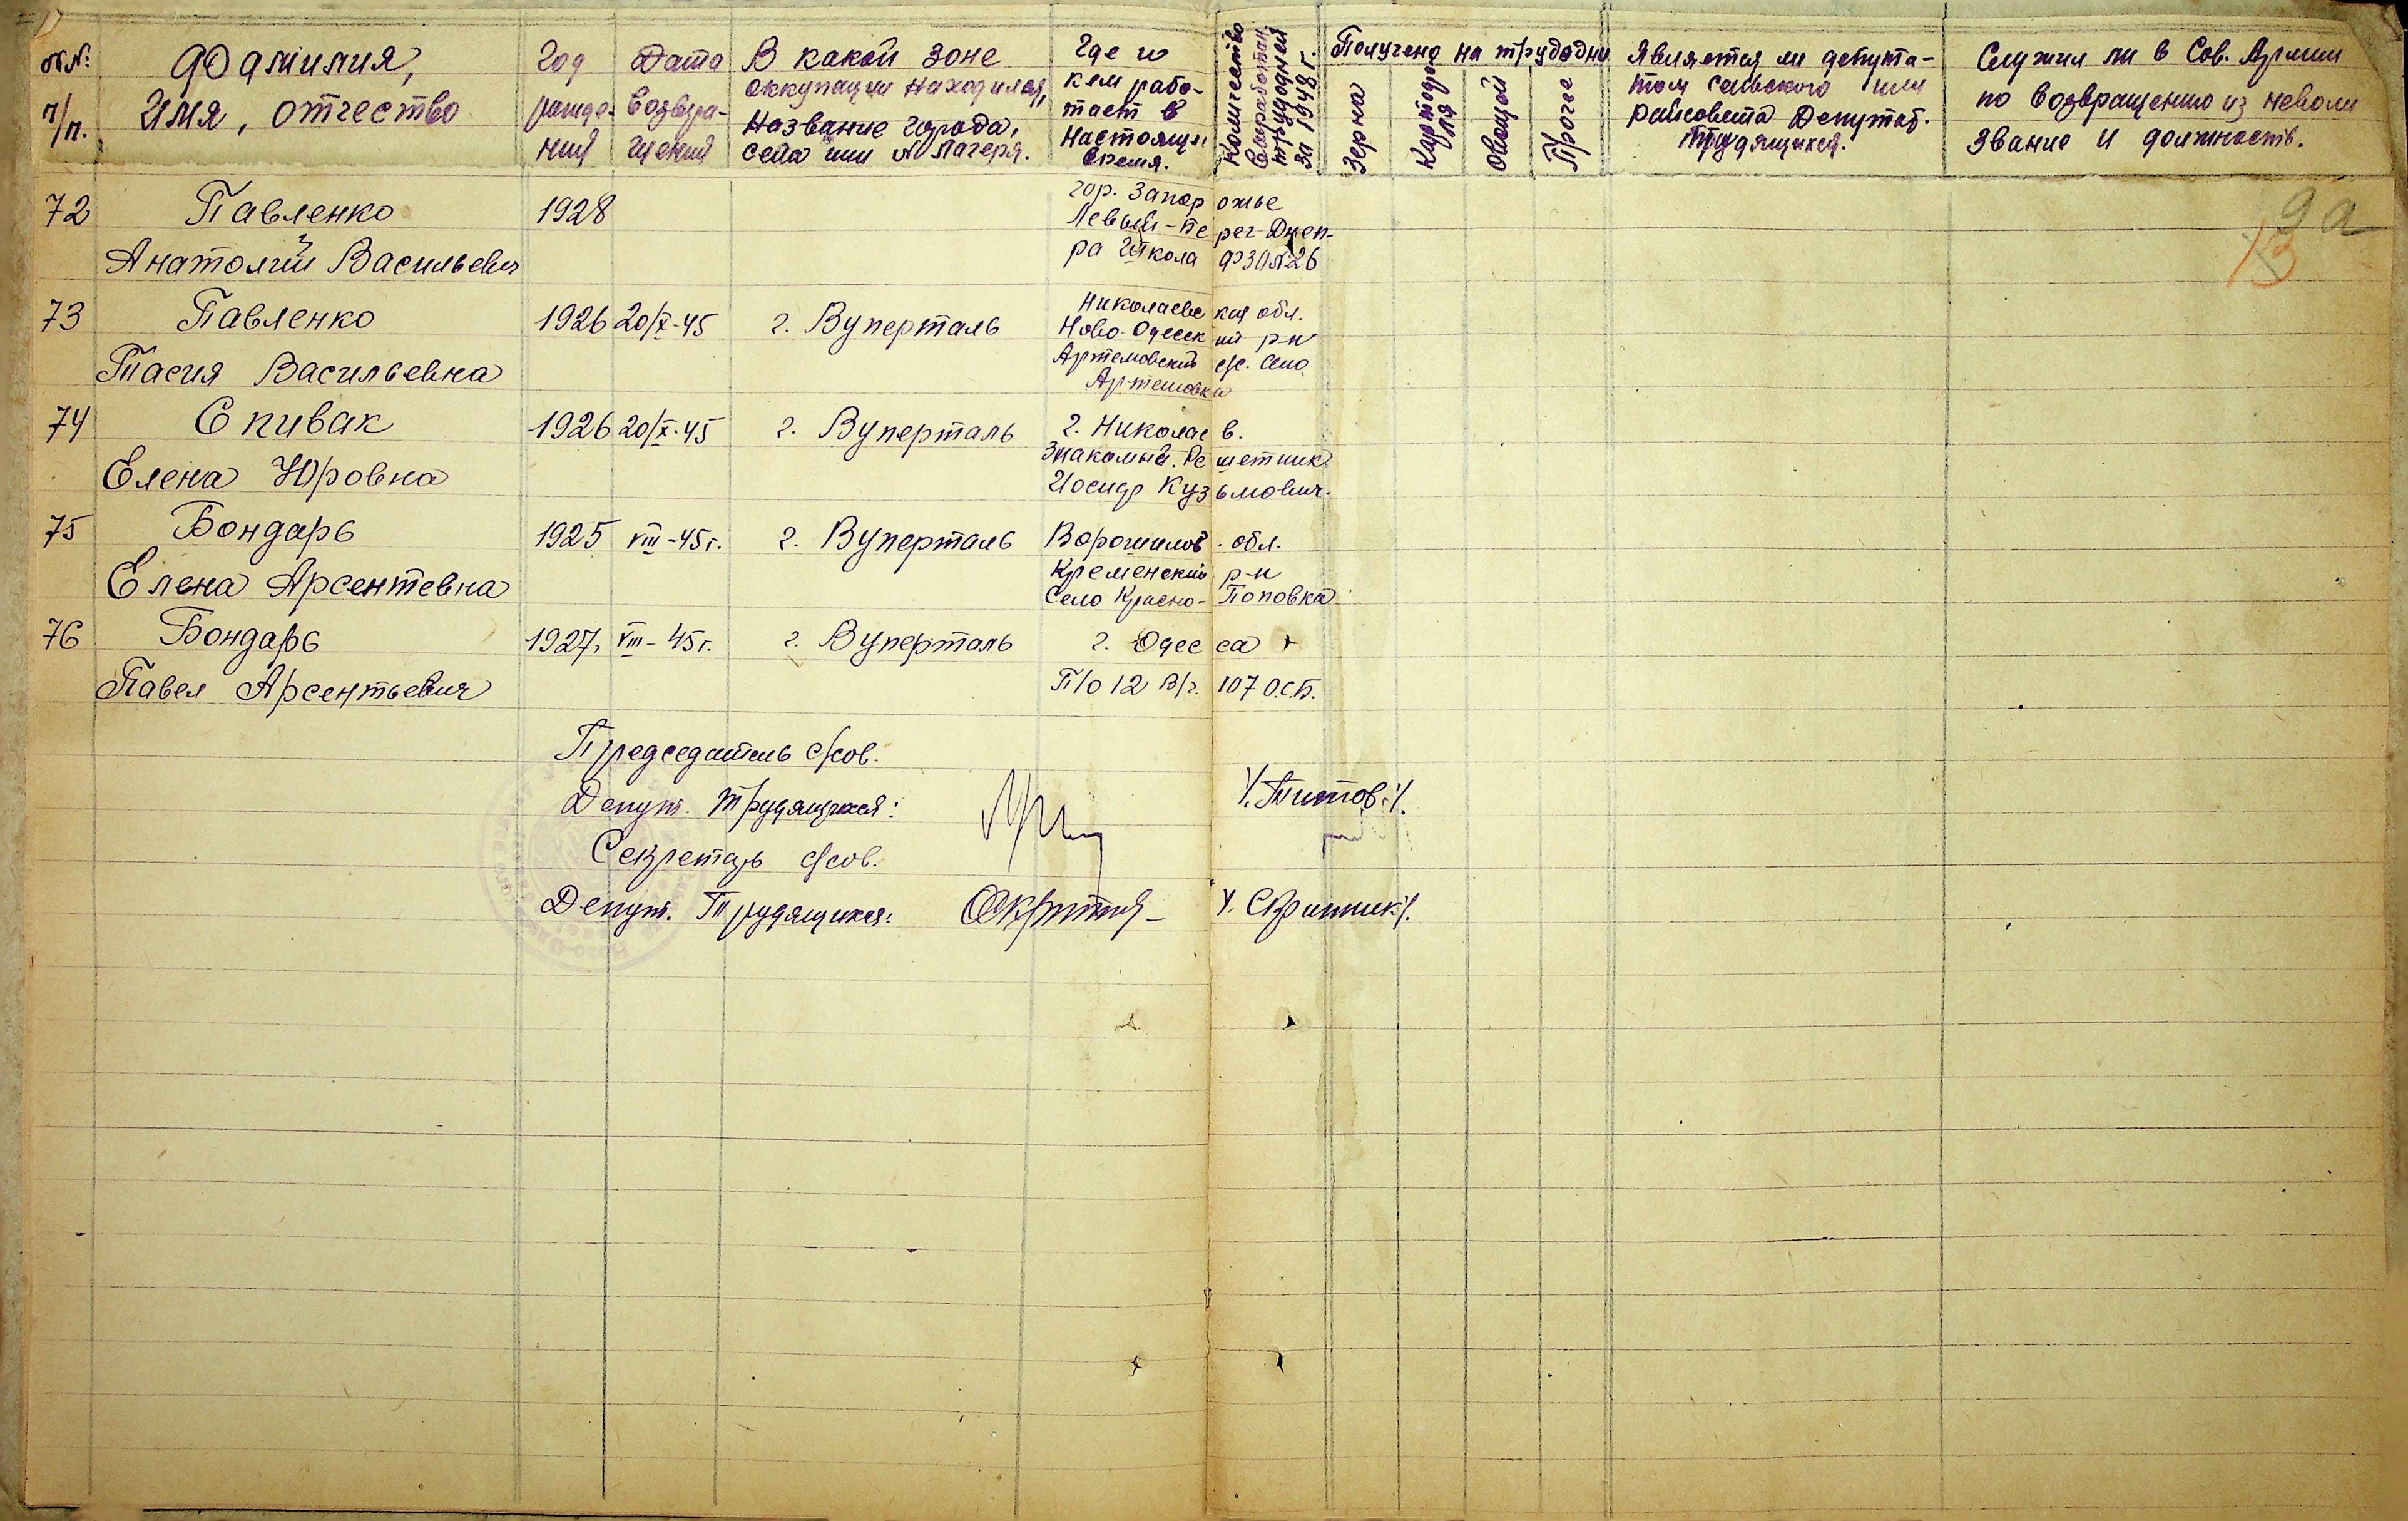 №
п/п.
Фамилия,
Имя, отчество
Год
рожде-
ния
Дата
возвра-
щения
В какой зоне
оккупации находился,
Название города,
села или № лагеря.
Где и
кем рабо-
тает в
настоящее
время.
Количество
выработан.
трудодней
за 1948 г.
Получено на трудодни
Зерна
Картофеля
Овощей
Прочее
Является ли депута-
том сельского или
райсовета Депутат.
Трудящихся.
Служил ли в Сов. Армии
по возвращению из неволи
звание и должность.
9а
13
72 Павленко 1928 гор. Запорожье
Левый-Берег Днеп-
Анатолий Васильевич ра Школа ФЗО №26
73 Павленко 1926 20/X-45 г. Вуперталь Николаевская обл.
Ново-Одесский р-н
Тасия Васильевна Артемовский с/с. Село
Артемовка
74 Спивак 1926 20/X-45 г. Вуперталь г. Николаев.
Знакомый. Решетник
Елена Юровна Иосиф Кузьмович.
75 Бондарь 1925 VIII-45г. г. Вуперталь Ворошилов. обл.
Кременский р-н
Елена Арсентевна Село Красно-Поповка
76 Бондарь 1927. VIII-45г. г. Вуперталь г. Одесса
Павел Арсентьевич П/о 12 В/ч. 107 О.С.Б.
Председатель с/сов.
Депут. трудящихся: /.Титов./
Секретарь с/сов.
Депут. Трудящихся: /. Скрипник/.